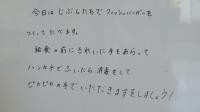 今日は じぶんたちで フィッシュバーガーを
つくって たべます。
給食の前に きれいに 手を あらって
ハンカチで ふいたら 消毒をして
ピカピカの手で いただきますをしましょう!